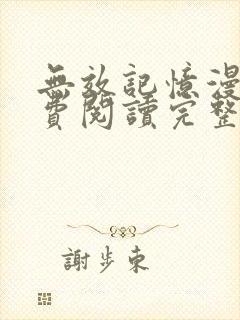 無效記憶漫
費閱讀完整
謝步東